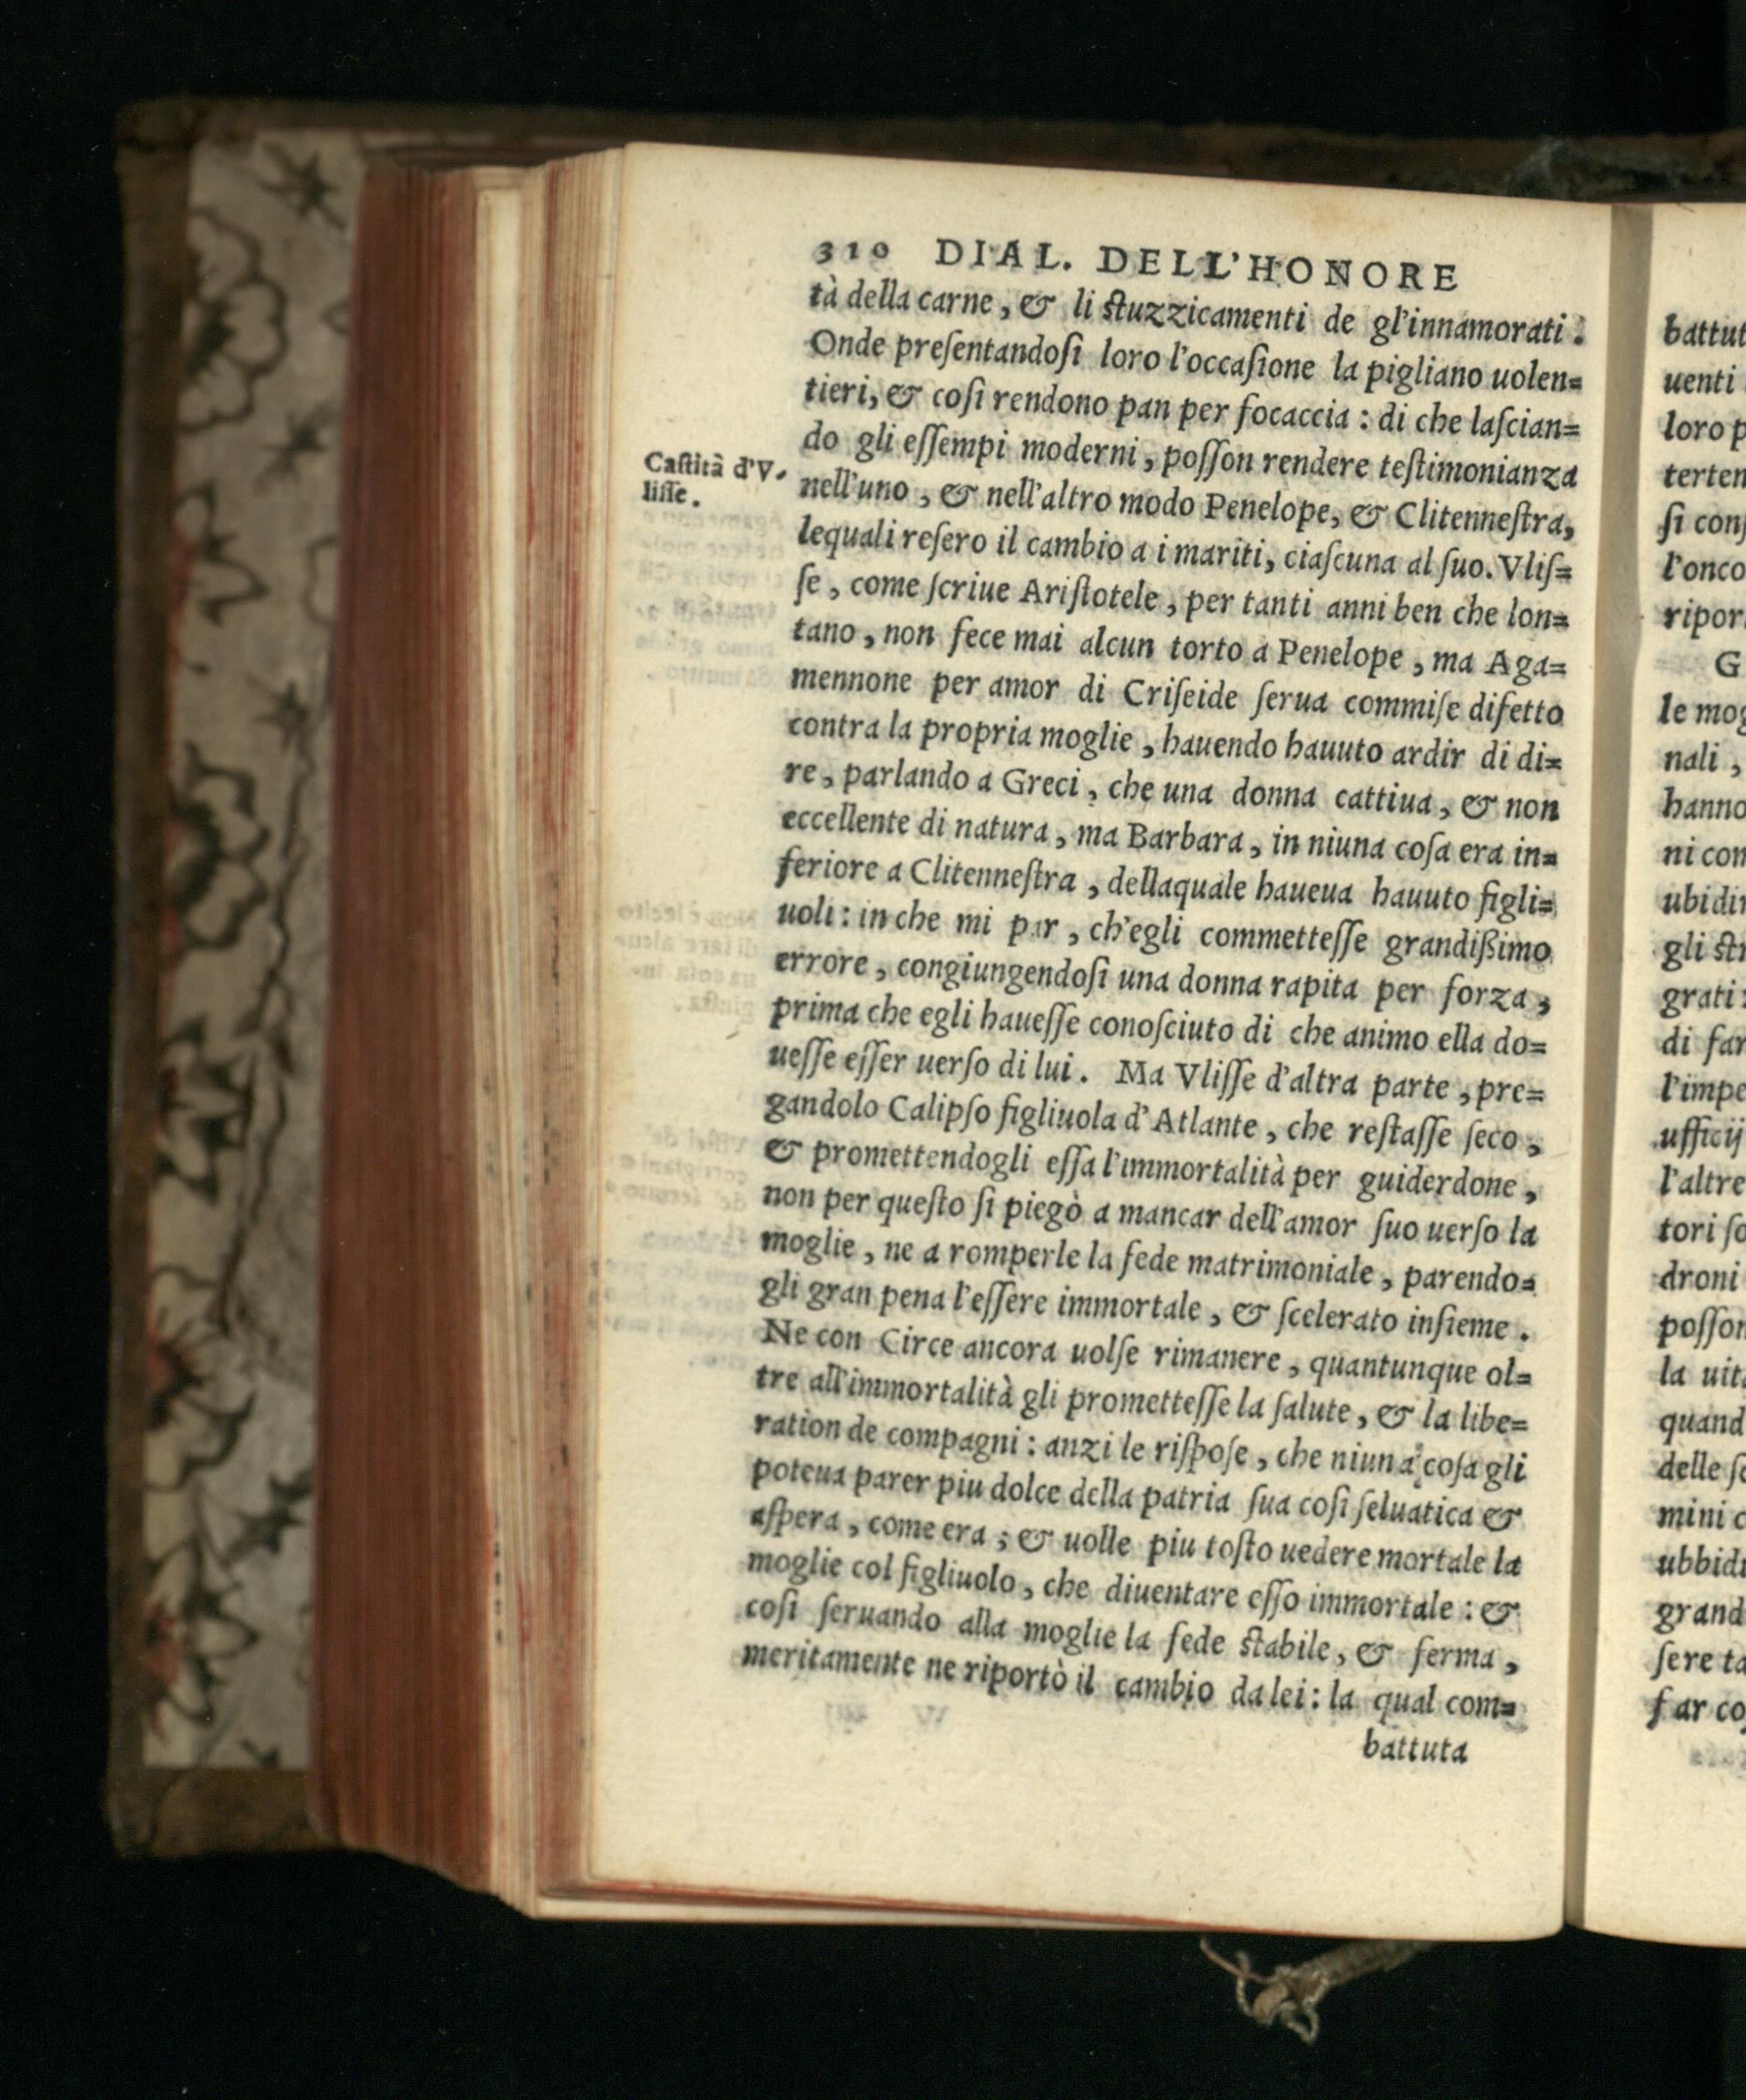 310 DIAL. DELL'HONORE
tà della carne, & li ſtuzzicamenti de gl'innamorati.
Onde preſentandoſi loro l'occaſione la pigliano uolen=
tieri, & coſi rendono pan per focaccia: di che laſcian=
do gli eſſempi moderni, poſſon rendere teſtimonianza
Caſtità d'V-
liſſe.
nell'uno, & nell'altro modo Penelope, & Clitenneſtra,
lequali reſero il cambio a i mariti, ciaſcuna al ſuo. Vliſ=
ſe, come ſcriue Ariſtotele, per tanti anni ben che lon=
tano, non fece mai alcun torto a Penelope, ma Aga=
mennone per amor di Criſeide ſerua commiſe difetto
contra la propria moglie, hauendo hauuto ardir di di=
re, parlando a Greci, che una donna cattiua, & non
eccellente di natura, ma Barbara, in niuna coſa era in=
feriore a Clitenneſtra, dellaquale haueua hauuto figli=
uoli: in che mi par, ch'egli commetteſſe grandißimo
errore, congiungendoſi una donna rapita per forza,
prima che egli haueſſe conoſciuto di che animo ella do=
ueſſe eſſer uerſo di lui. Ma Vliſſe d'altra parte, pre=
gandolo Calipſo figliuola d'Atlante, che reſtaſſe ſeco,
& promettendogli eſſa l'immortalità per guiderdone,
non per queſto ſi piegò a mancar dell'amor ſuo uerſo la
moglie, ne a romperle la fede matrimoniale, parendo=
gli gran pena l'eſſere immortale, & ſcelerato inſieme.
Ne con Circe ancora uolſe rimanere, quantunque ol=
tre all'immortalità gli prometteſſe la ſalute, & la libe=
ration de compagni: anzi le riſpoſe, che niuna coſa gli
poteua parer piu dolce della patria ſua coſi ſeluatica &
aſpera, come era; & uolle piu toſto uedere mortale la
moglie col figliuolo, che diuentare eſſo immortale: &
coſi ſeruando alla moglie la fede ſtabile, & ferma,
meritamente ne riportò il cambio da lei: la qual com=
battuta
battut
uenti
loro p
terten
ſi conſ
l'onco
ripor
G
le mog
nali,
hanno
ni con
ubidir
gli ſtr
grati:
di far
l'impe
ufficij
l'altre
tori ſo
droni
poſſon
la uita
quand
delle ſe
mini c
ubbidi
grand
ſere ta
far coſ